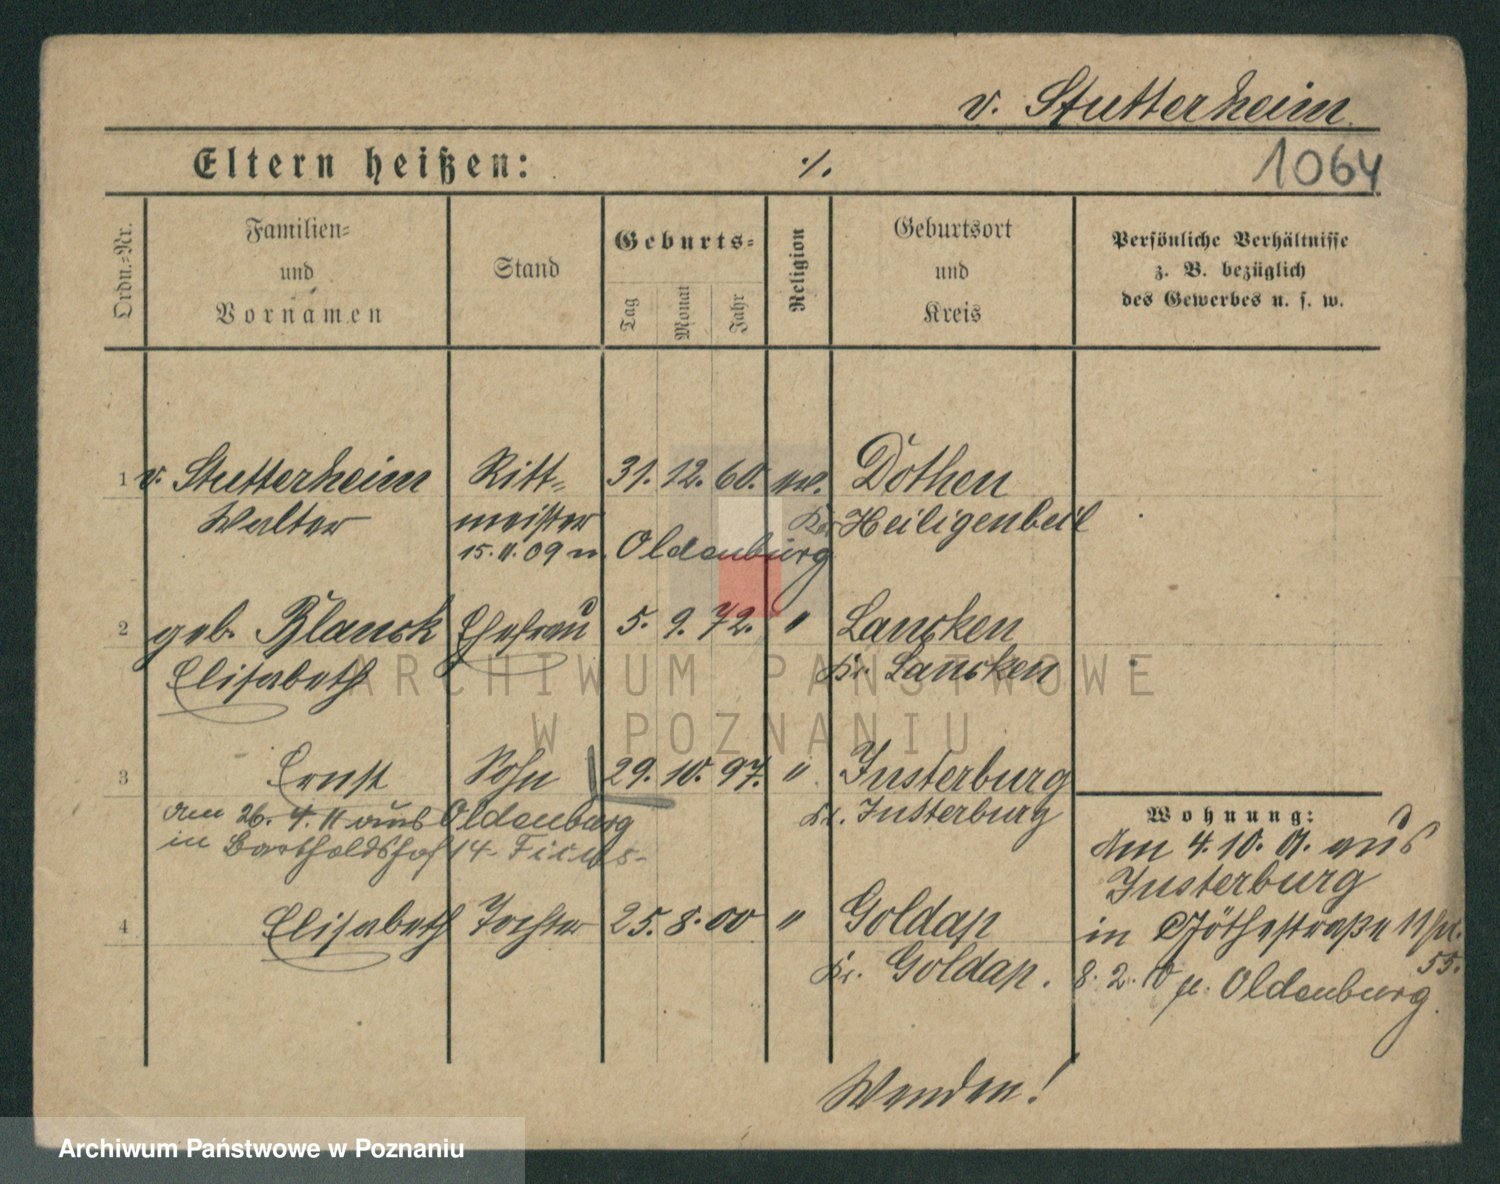 v. Stutterheim
Eltern heißen: ./.
1064
Ordn.-Nr.
Familien- und Vornamen
Stand
Geburts-
Tag Monat Jahr
Religion
Geburtsort und Kreis
Persönliche Verhältnisse
z. B. bezüglich
des Gewerbes u. s. w.
1 v. Stutterheim Ritt- 31. 12. 60. ev. Dothen
Walter meister Kr. Heiligenbeil
15. 11. 09 n. Oldenburg
2 geb. Blanck Ehefrau 5. 9. 72. " Lancken
Elisabeth Kr. Lancken
3 Ernst Sohn 29. 10. 97. " Insterburg
am 26. 4. 11 aus Oldenburg Kr. Insterburg
in Bartholdshof 14.
4 Elisabeth Tochter 25. 8. 00 " Goldap
Kr. Goldap.
Wohnung:
Am 4. 10. 01. aus
Insterburg
in Göthestraße 11
55.
8. 2. 10 n. Oldenburg
Wenden!
ARCHIWUM PAŃSTWOWE
W POZNANIU
Archiwum Państwowe w Poznaniu